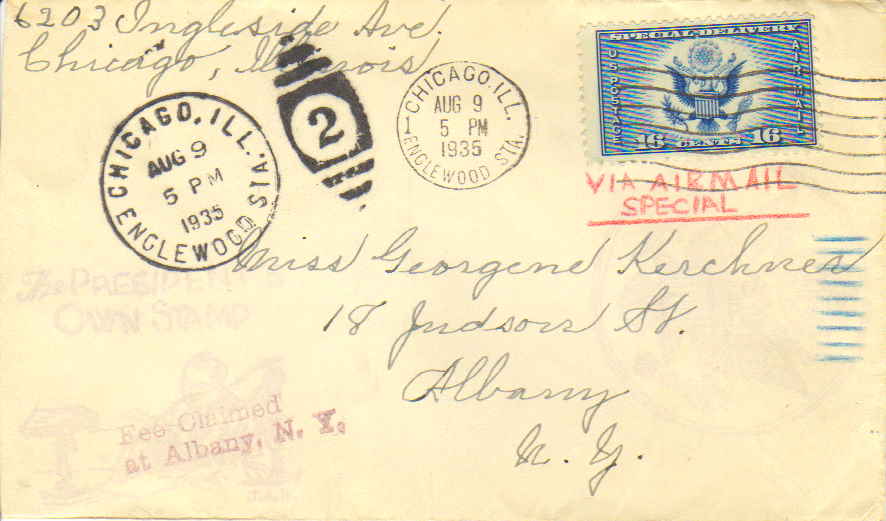 6203 Ingleside Ave.
Chicago, Illinois
CHICAGO, ILL.
AUG 9
5 PM
1935
ENGLEWOOD STA.
2
CHICAGO, ILL.
AUG 9
5 PM
1935
1
ENGLEWOOD STA.
SPECIAL DELIVERY
U.S. POSTAGE
AIR MAIL
16 CENTS 16
VIA AIRMAIL
SPECIAL
Miss Georgene Kerchner
18 Judson St.
Albany
N. Y.
The PRESIDENT'S
OWN STAMP
Fee Claimed
at Albany, N. Y.